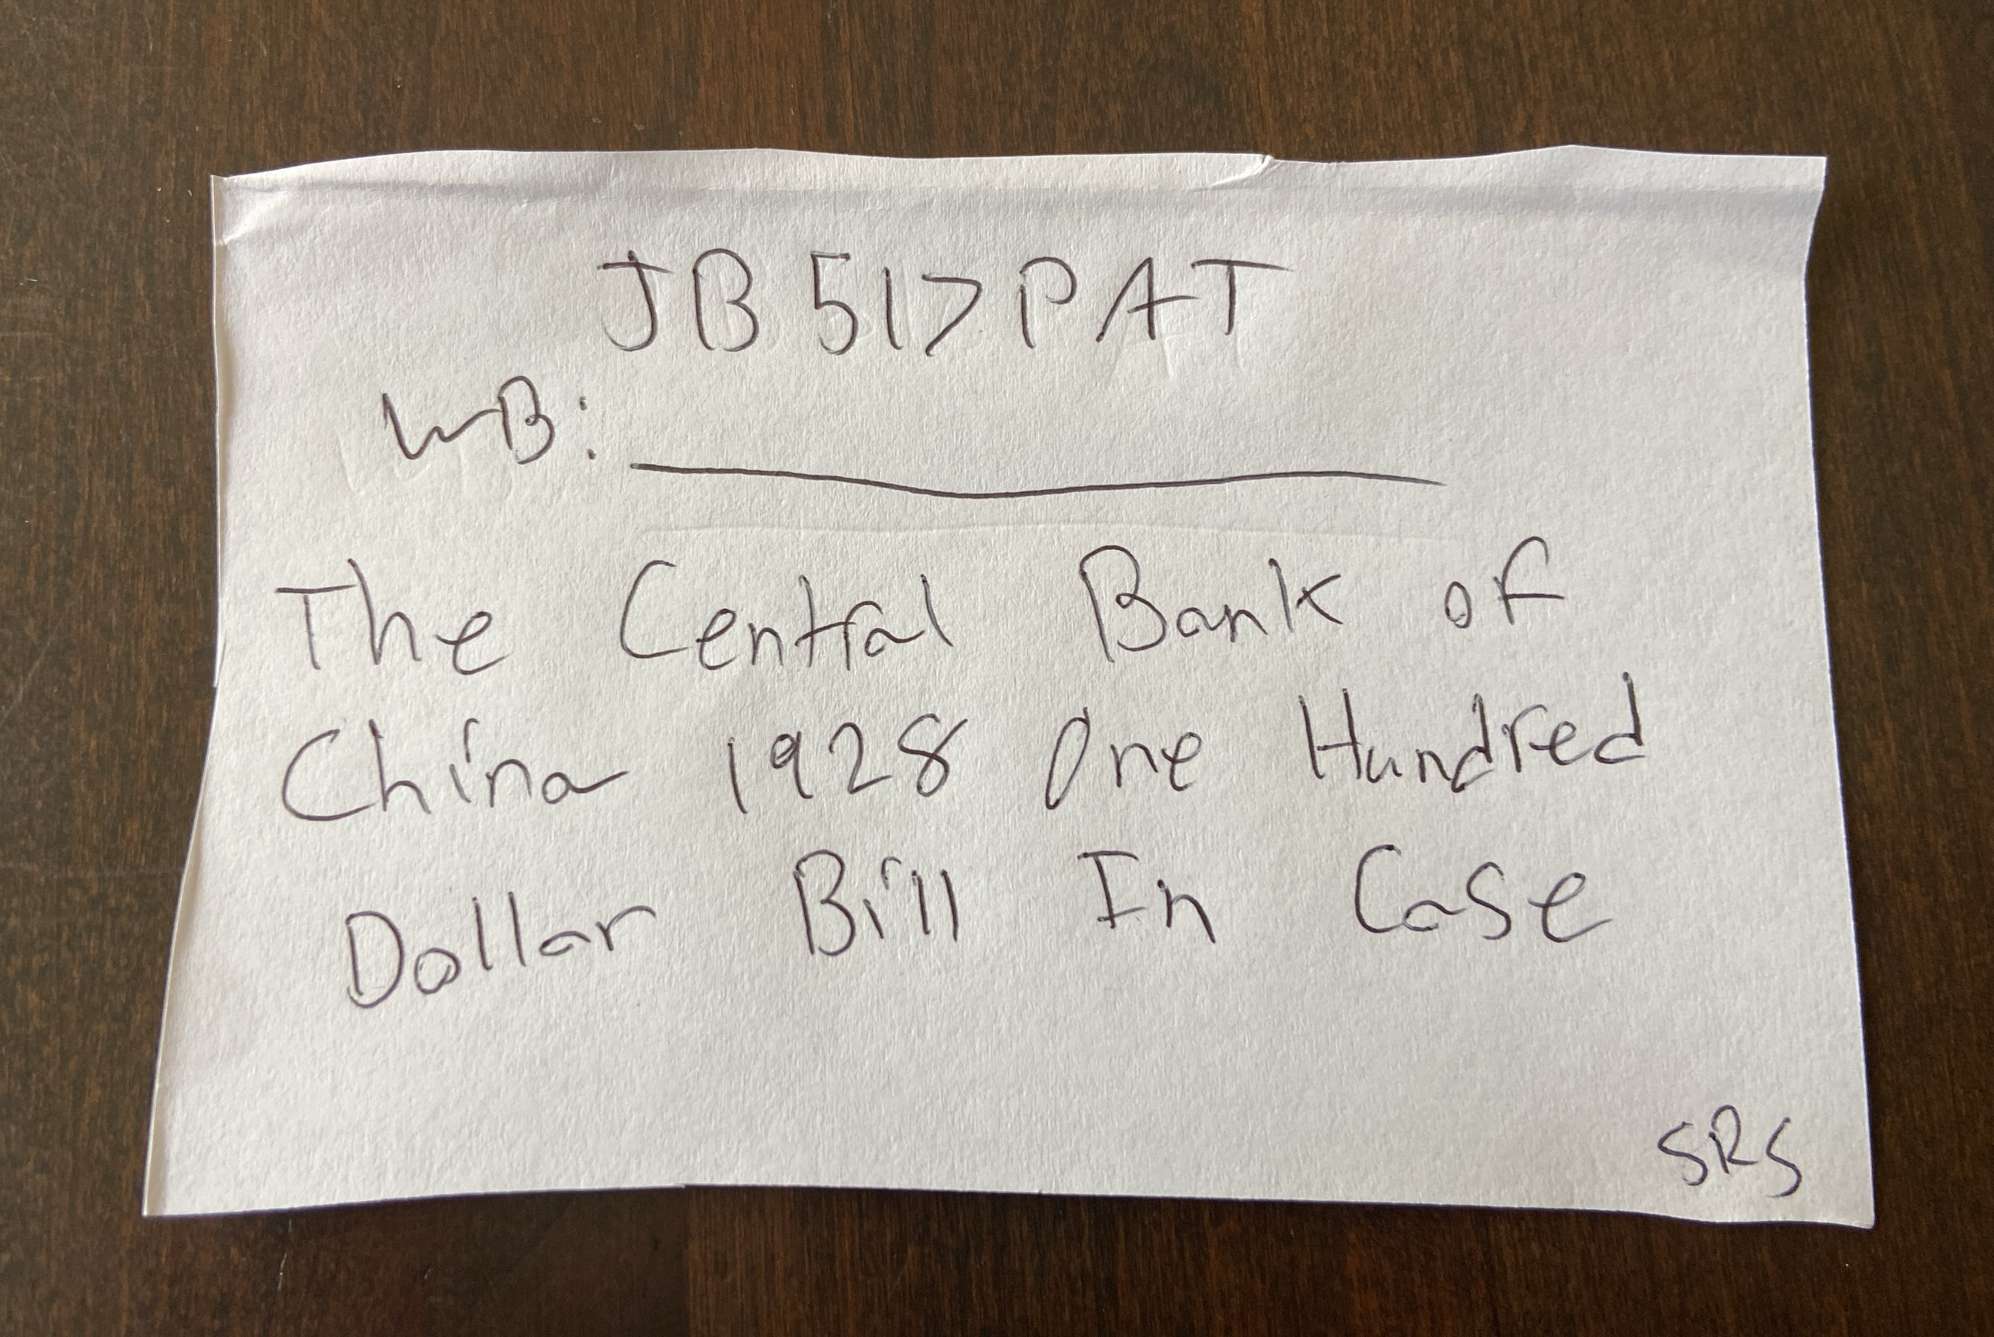 JB517PAT
WB:
The Central Bank of
China 1928 One Hundred
Dollar Bill In Case
SRS